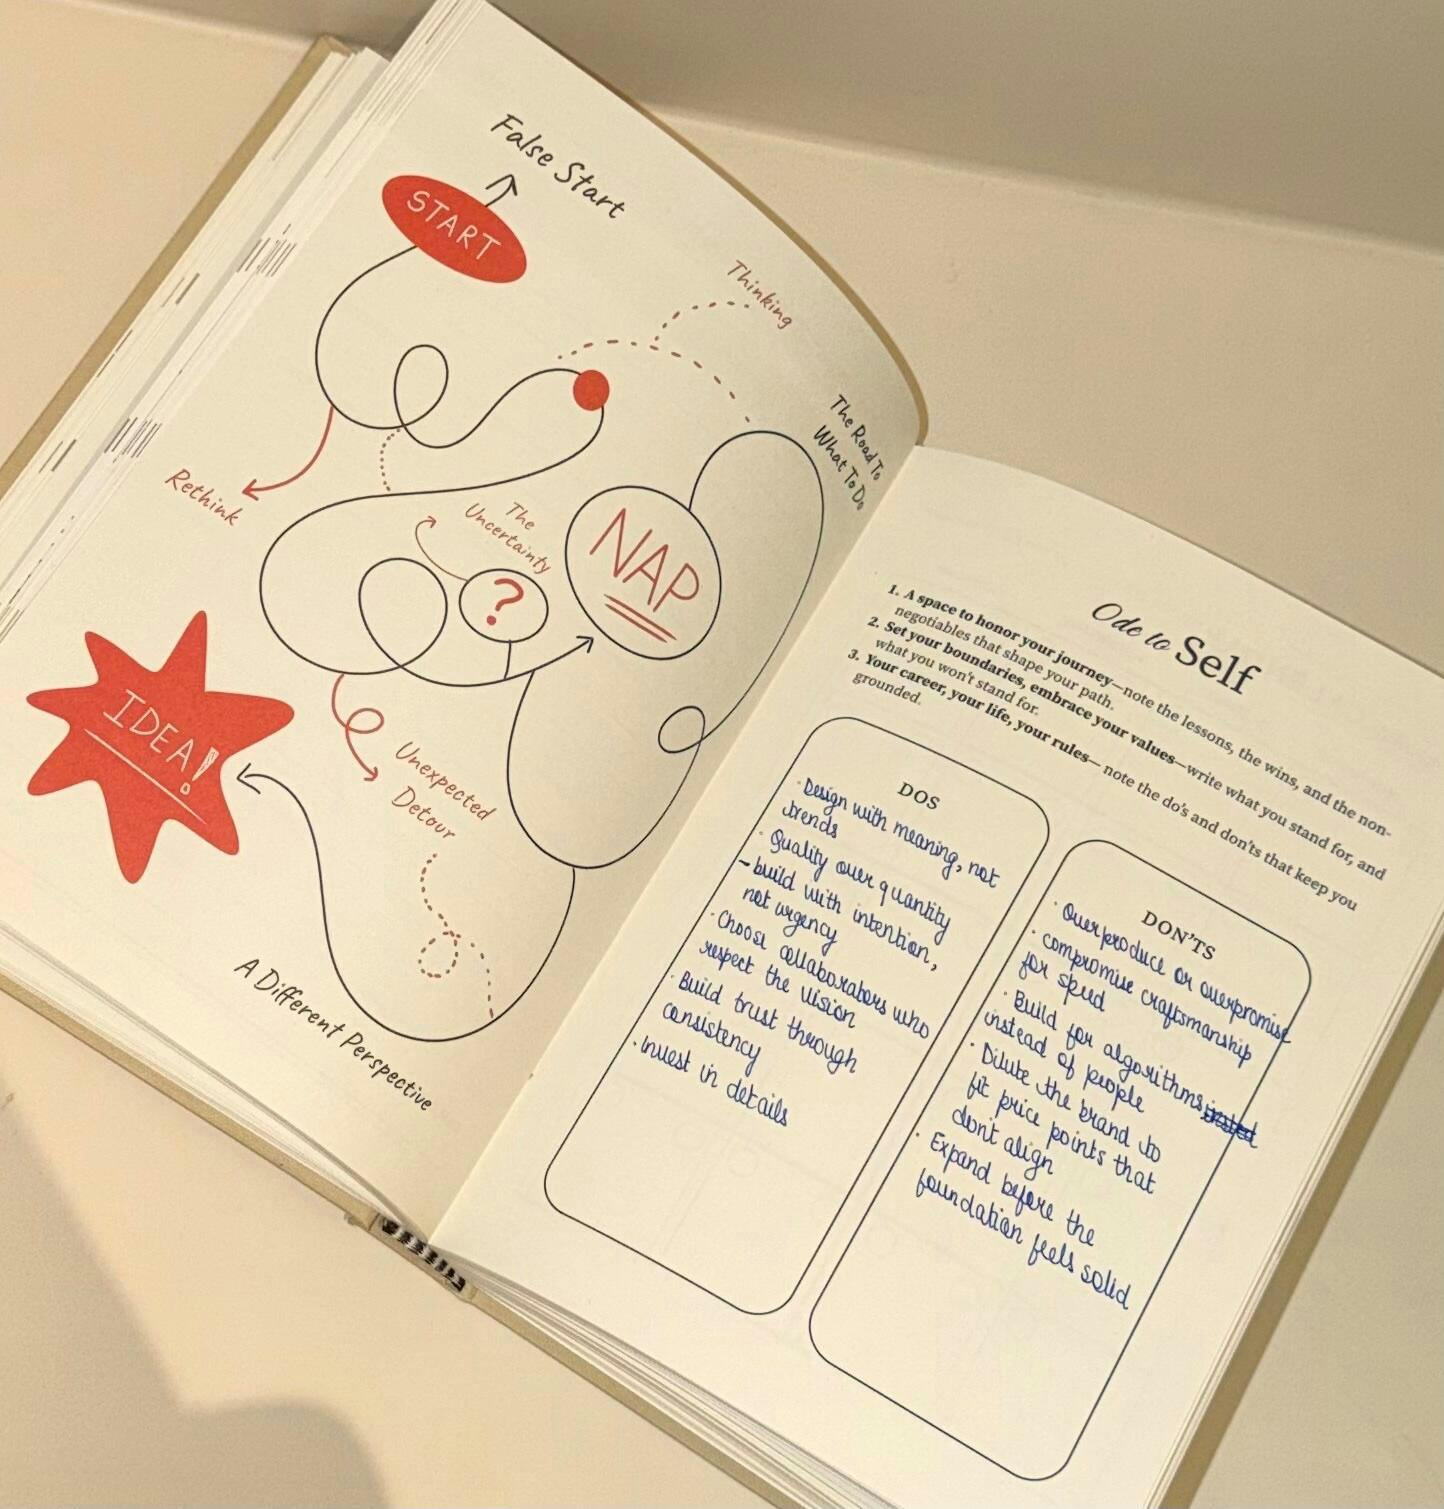 False Start
START
Thinking
The Road To
What To Do
Rethink
The
Uncertainty
?
NAP
IDEA!
Unexpected
Detour
A Different Perspective
Ode to Self
1. A space to honor your journey—note the lessons, the wins, and the non-
negotiables that shape your path.
2. Set your boundaries, embrace your values—write what you stand for, and
what you won't stand for.
3. Your career, your life, your rules— note the do's and don'ts that keep you
grounded.
DOS
· Design with meaning, not
trends
· Quality over quantity
- build with intention,
not urgency
· Choose collaborators who
respect the vision
· Build trust through
consistency
· invest in details
DON'TS
· Overproduce or overpromise
· compromise craftsmanship
for speed
· Build for algorithms
instead of people
· Dilute the brand to
fit price points that
don't align
· Expand before the
foundation feels solid